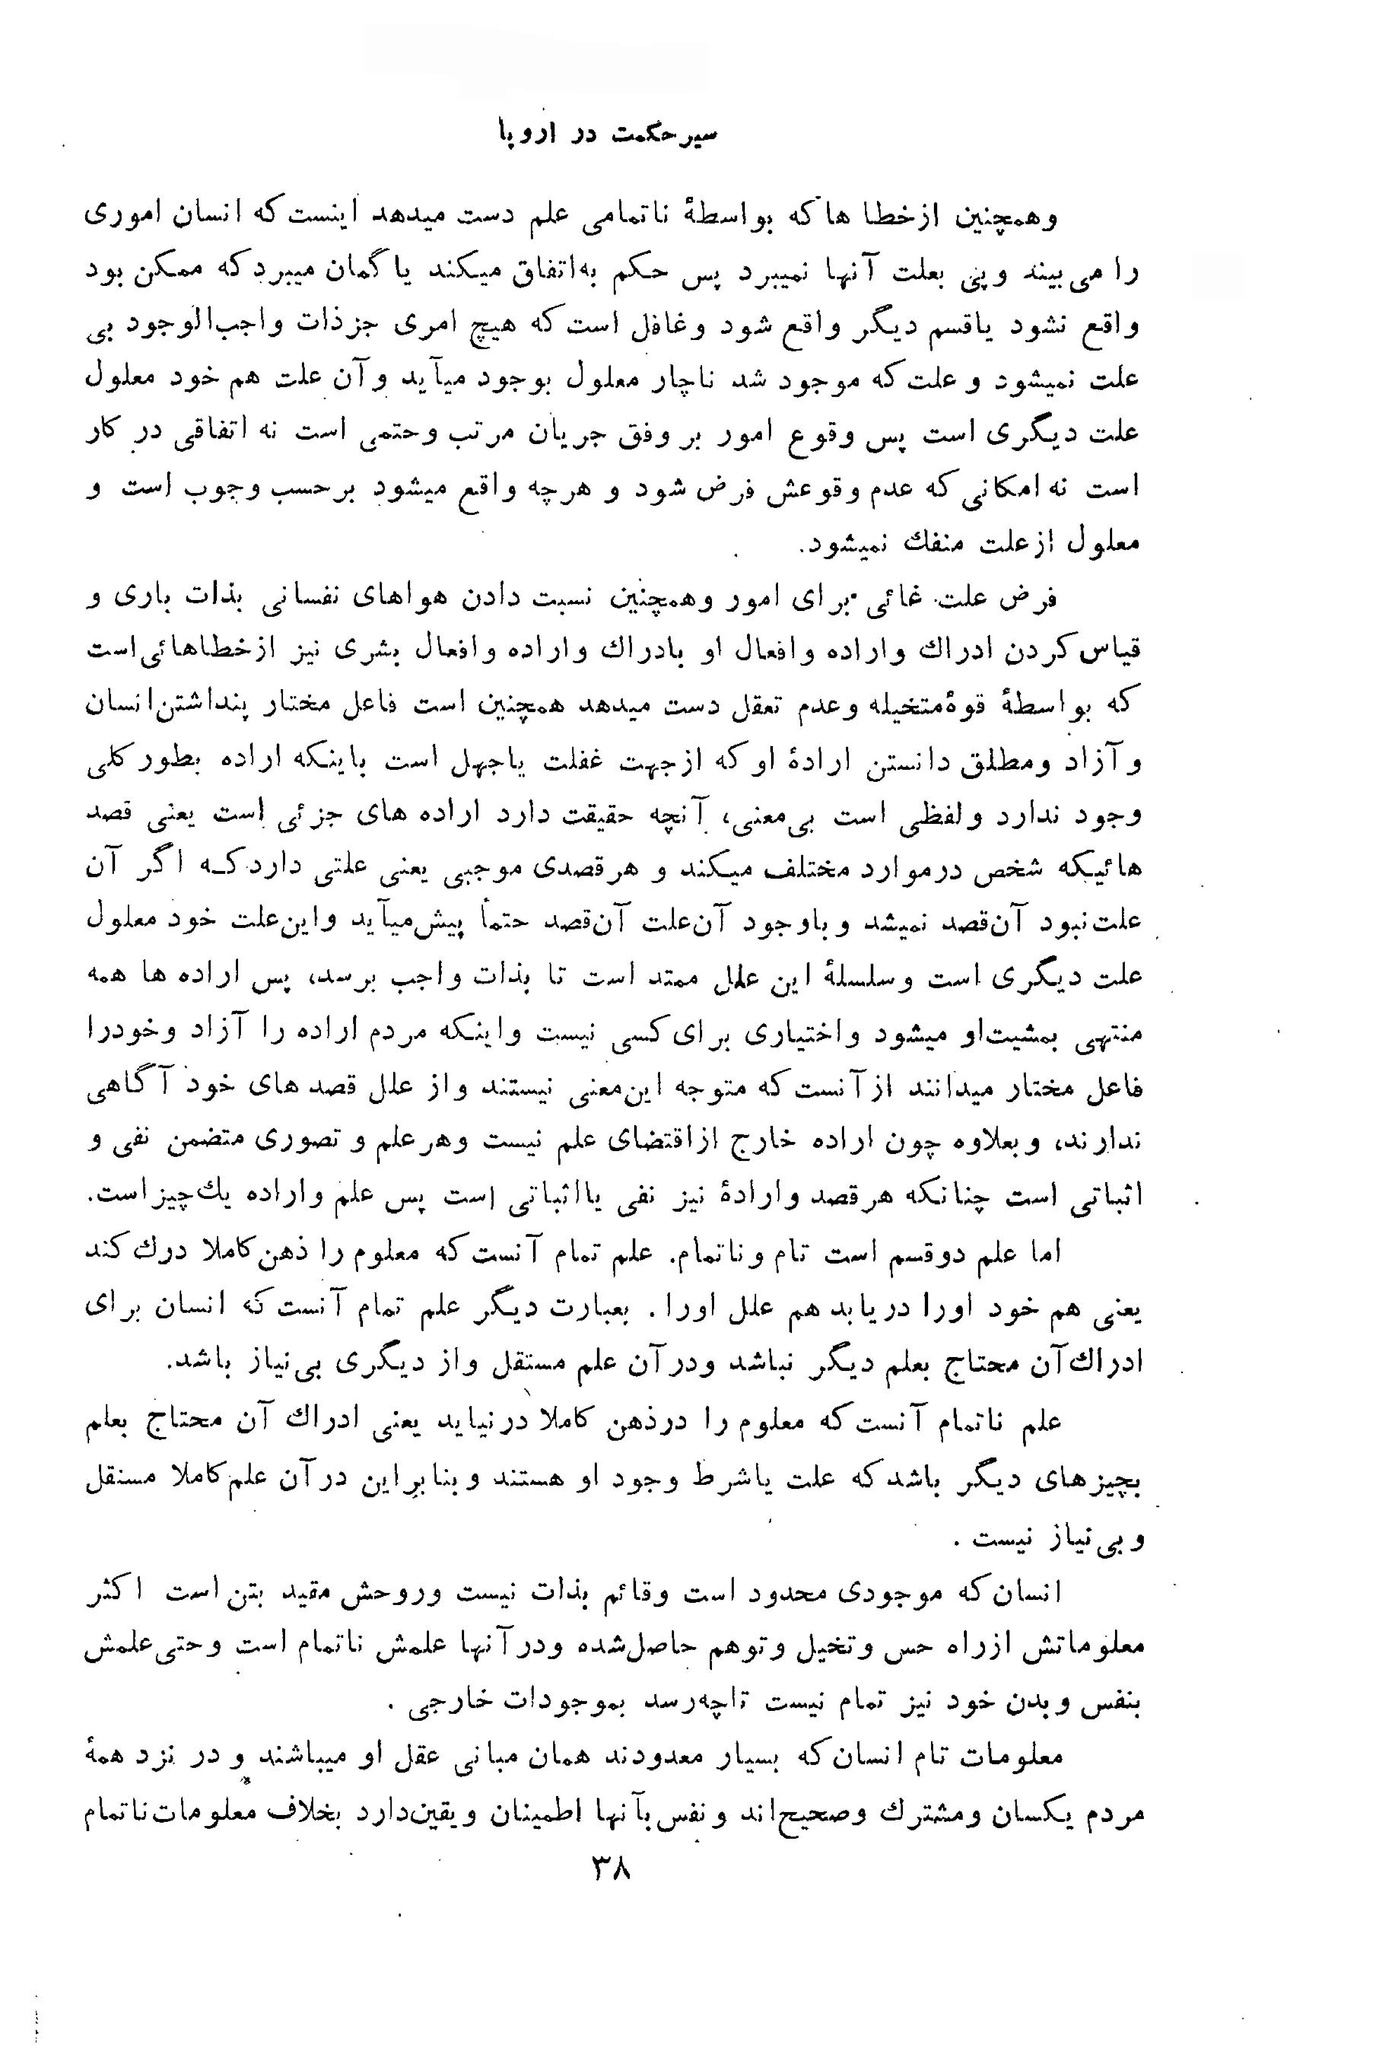 سیر حکمت در اروپا
وهمچنین از خطا ها که بواسطهٔ ناتمامی علم دست میدهد اینست که انسان اموری
را می‌بیند و پی بعلت آنها نمیبرد پس حکم به‌اتفاق میکند یا گمان میبرد که ممکن بود
واقع نشود یاقسم دیگر واقع شود و غافل است که هیچ امری جز ذات واجب‌الوجود بی
علت نمیشود و علت که موجود شد ناچار معلول بوجود میآید و آن علت هم خود معلول
علت دیگری است پس وقوع امور بر وفق جریان مرتب و حتمی است نه اتفاقی در کار
است نه امکانی که عدم وقوعش فرض شود و هرچه واقع میشود برحسب وجوب است و
معلول از علت منفك نمیشود.
فرض علت غائی برای امور وهمچنین نسبت دادن هواهای نفسانی بذات باری و
قیاس کردن ادراك و اراده و افعال او بادراك و اراده و افعال بشری نیز از خطاهائی است
که بواسطهٔ قوهٔ متخیله و عدم تعقل دست میدهد همچنین است فاعل مختار پنداشتن انسان
و آزاد و مطلق دانستن ارادهٔ او که از جهت غفلت یا جهل است باینکه اراده بطور کلی
وجود ندارد و لفظی است بی‌معنی، آنچه حقیقت دارد اراده های جزئی است یعنی قصد
هائیکه شخص در موارد مختلف میکند و هر قصدی موجبی یعنی علتی دارد کــه اگر آن
علت نبود آن قصد نمیشد و باوجود آن علت آن قصد حتماً پیش میآید و این علت خود معلول
علت دیگری است و سلسلهٔ این علل ممتد است تا بذات واجب برسد، پس اراده ها همه
منتهی بمشیت او میشود و اختیاری برای کسی نیست و اینکه مردم اراده را آزاد و خودرا
فاعل مختار میدانند از آنست که متوجه این معنی نیستند و از علل قصد های خود آگاهی
ندارند، و بعلاوه چون اراده خارج از اقتضای علم نیست و هر علم و تصوری متضمن نفی و
اثباتی است چنانکه هر قصد و ارادهٔ نیز نفی یا اثباتی است پس علم و اراده یك چیز است.
اما علم دو قسم است تام و ناتمام. علم تمام آنست که معلوم را ذهن کاملا درك کند
یعنی هم خود اورا دریابد هم علل اورا . بعبارت دیگر علم تمام آنست که انسان برای
ادراك آن محتاج بعلم دیگر نباشد و در آن علم مستقل و از دیگری بی‌نیاز باشد.
علم ناتمام آنست که معلوم را در ذهن کاملا در نیاید یعنی ادراك آن محتاج بعلم
بچیز های دیگر باشد که علت یا شرط وجود او هستند و بنابراین در آن علم کاملا مستقل
و بی‌نیاز نیست .
انسان که موجودی محدود است و قائم بذات نیست و روحش مقید بتن است اکثر
معلوماتش از راه حس و تخیل و توهم حاصل شده و در آنها علمش ناتمام است و حتی علمش
بنفس و بدن خود نیز تمام نیست تاچه رسد بموجودات خارجی .
معلومات تام انسان که بسیار معدودند همان مبانی عقل او میباشند و در نزد همهٔ
مردم یکسان و مشترك و صحیح‌اند و نفس بآنها اطمینان و یقین دارد بخلاف معلومات ناتمام
۳۸